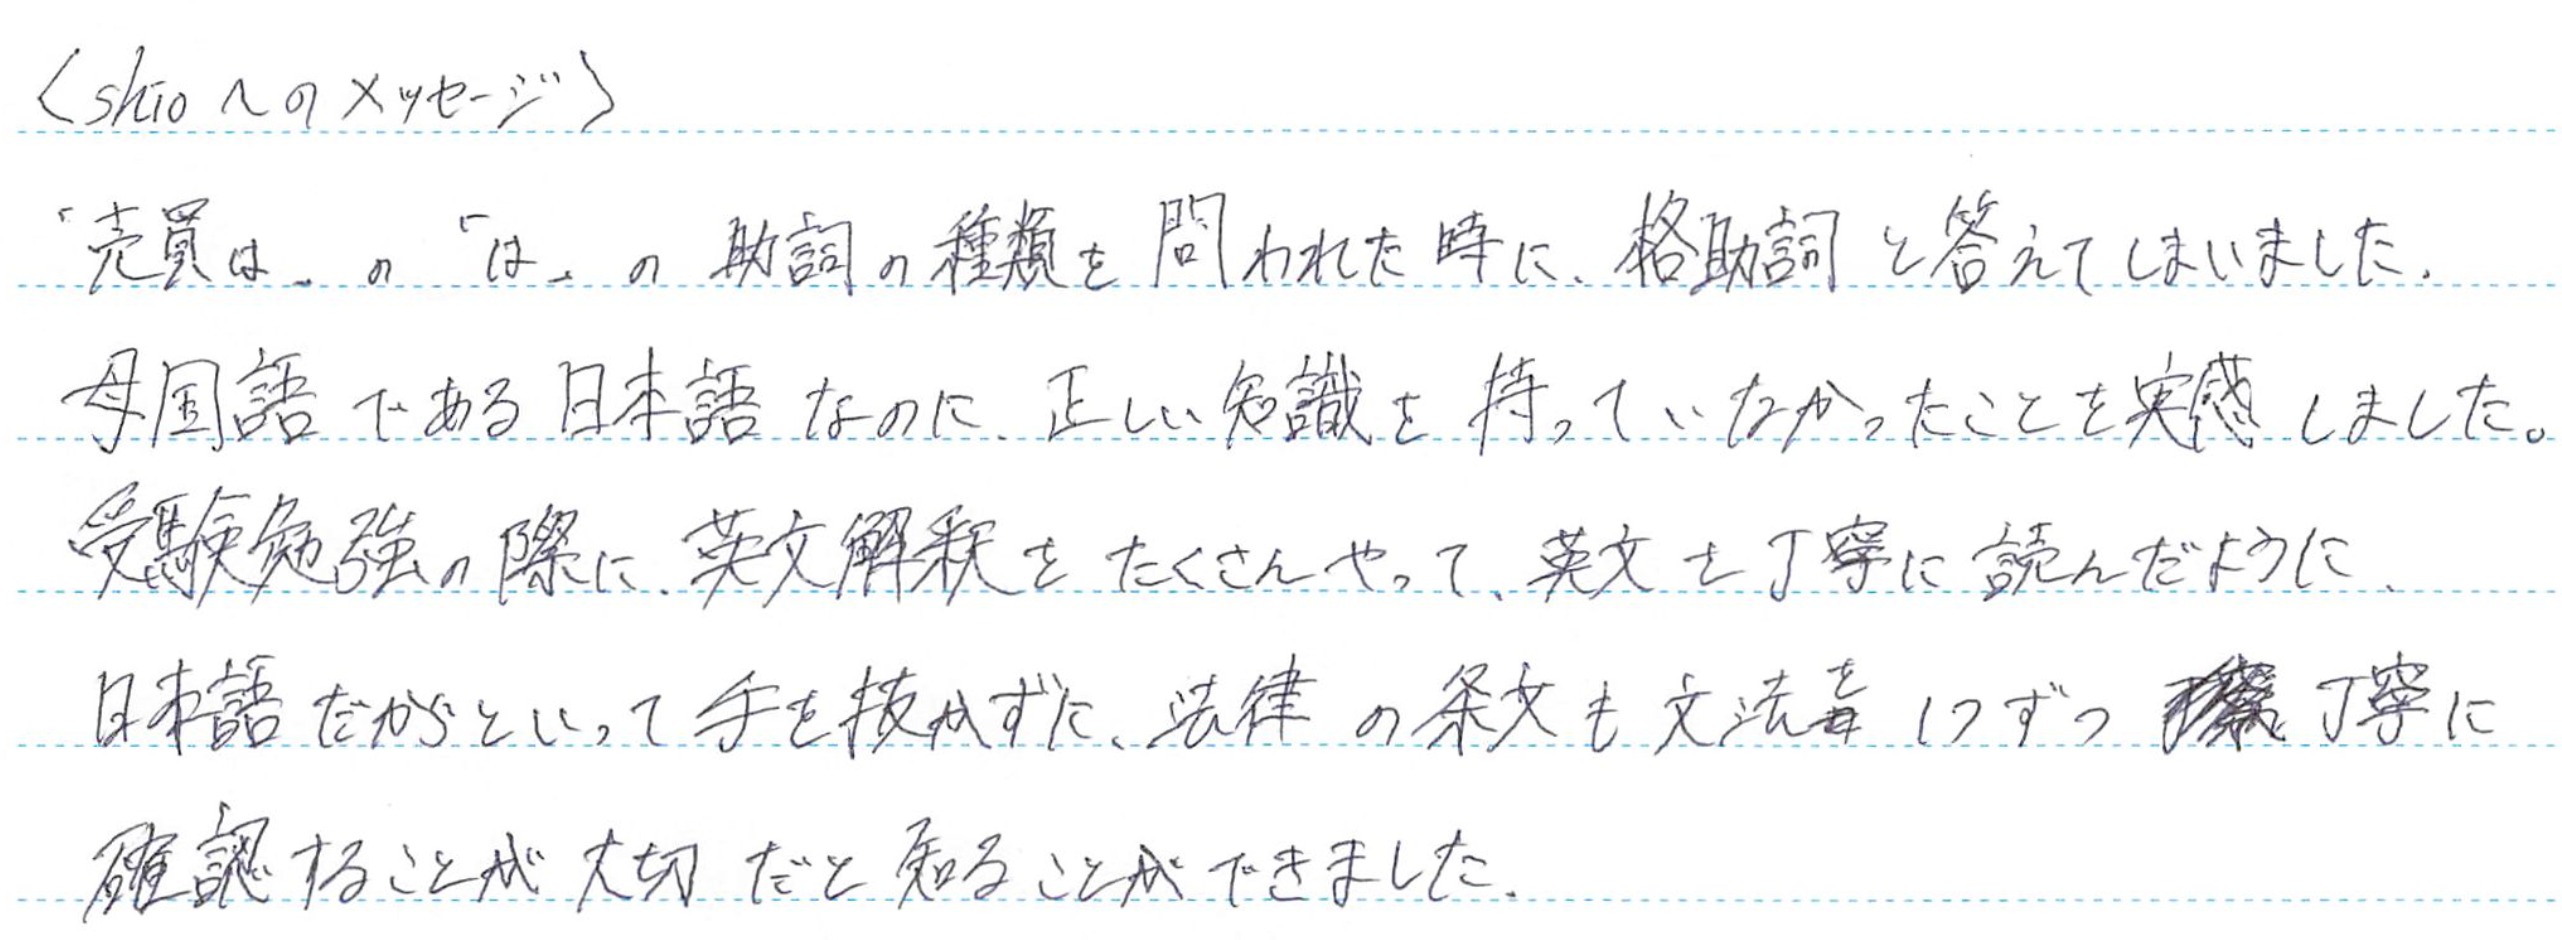 〈shioへのメッセージ〉
「売買は」の「は」の助詞の種類を問われた時に、格助詞と答えてしまいました。
母国語である日本語なのに、正しい知識を持っていなかったことを実感しました。
受験勉強の際に、英文解釈をたくさんやって、英文を丁寧に読んだように、
日本語だからといって手を抜かずに、法律の条文も文法を1つずつ丁寧に
確認することが大切だと知ることができました。